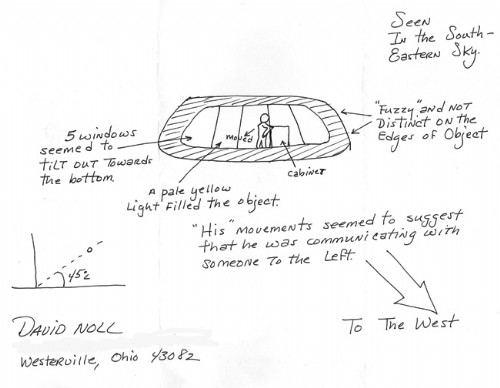 Seen
In the South-
Eastern Sky.
"Fuzzy" and not
Distinct on the
Edges of Object
5 windows
seemed to
tilt out towards
the bottom.
moved
cabinet
A pale yellow
Light filled the object.
"His" movements seemed to suggest
that he was communicating with
someone to the left.
45°
To The West
David Noll
Westerville, Ohio 43082